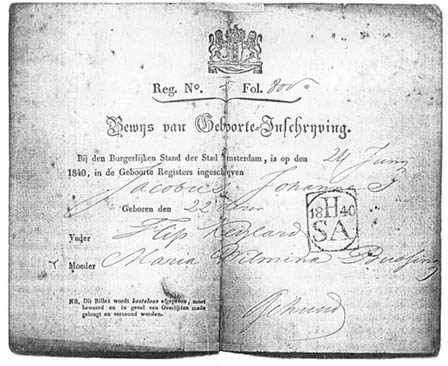 Reg. No. Fol. 80v
Bewijs van Geboorte-Inschryving.
Bij den Burgerlijken Stand der Stad Amsterdam, is op den 24 Juny
1840, in de Geboorte Registers ingeschreven
Jacobus Johannes
Geboren den 22
Vader Flip
Moeder Maria Wilmina Bussing
18 H 40
SA
NB. Dit Billet wordt kosteloos afgegeven, moet
bewaard en in geval van Overlijden mede
gebragt en vertoond worden.